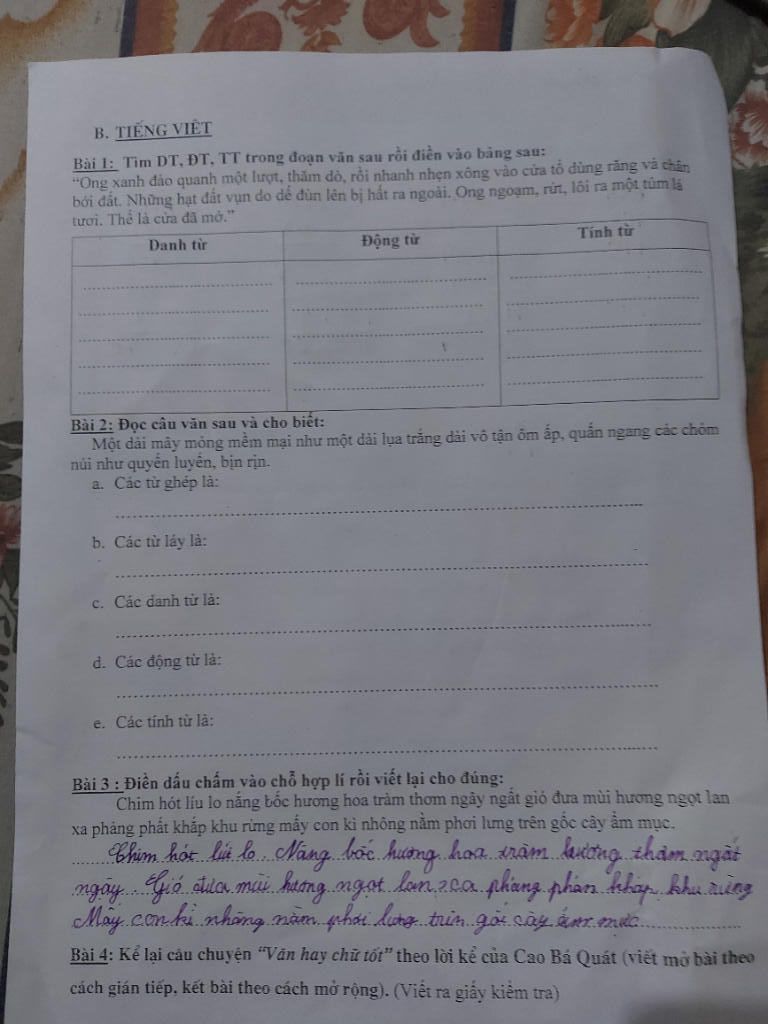 B. TIẾNG VIỆT
Bài 1: Tìm DT, ĐT, TT trong đoạn văn sau rồi điền vào bảng sau:
“Ong xanh đảo quanh một lượt, thăm dò, rồi nhanh nhẹn xông vào cửa tổ dùng răng và chân
bới đất. Những hạt đất vụn do dế đùn lên bị hất ra ngoài. Ong ngoạm, rứt, lôi ra một túm lá
tươi. Thế là cửa đã mở.”
Danh từ Động từ Tính từ
Bài 2: Đọc câu văn sau và cho biết:
Một dải mây mỏng mềm mại như một dải lụa trắng dài vô tận ôm ấp, quấn ngang các chỏm
núi như quyến luyến, bịn rịn.
a. Các từ ghép là:
b. Các từ láy là:
c. Các danh từ là:
d. Các động từ là:
e. Các tính từ là:
Bài 3 : Điền dấu chấm vào chỗ hợp lí rồi viết lại cho đúng:
Chim hót líu lo nắng bốc hương hoa tràm thơm ngây ngất gió đưa mùi hương ngọt lan
xa phảng phất khắp khu rừng mấy con kì nhông nằm phơi lưng trên gốc cây ẩm mục.
Chim hót líu lo. Nắng bốc hương hoa tràm hương thơm ngất
ngây. Gió đưa mùi hương ngọt lan xa phảng khắp khu rừng
Mấy con kì nhông nằm phơi lưng trên gốc cây ẩm mục
Bài 4: Kể lại câu chuyện “Văn hay chữ tốt” theo lời kể của Cao Bá Quát (viết mở bài theo
cách gián tiếp, kết bài theo cách mở rộng). (Viết ra giấy kiểm tra)